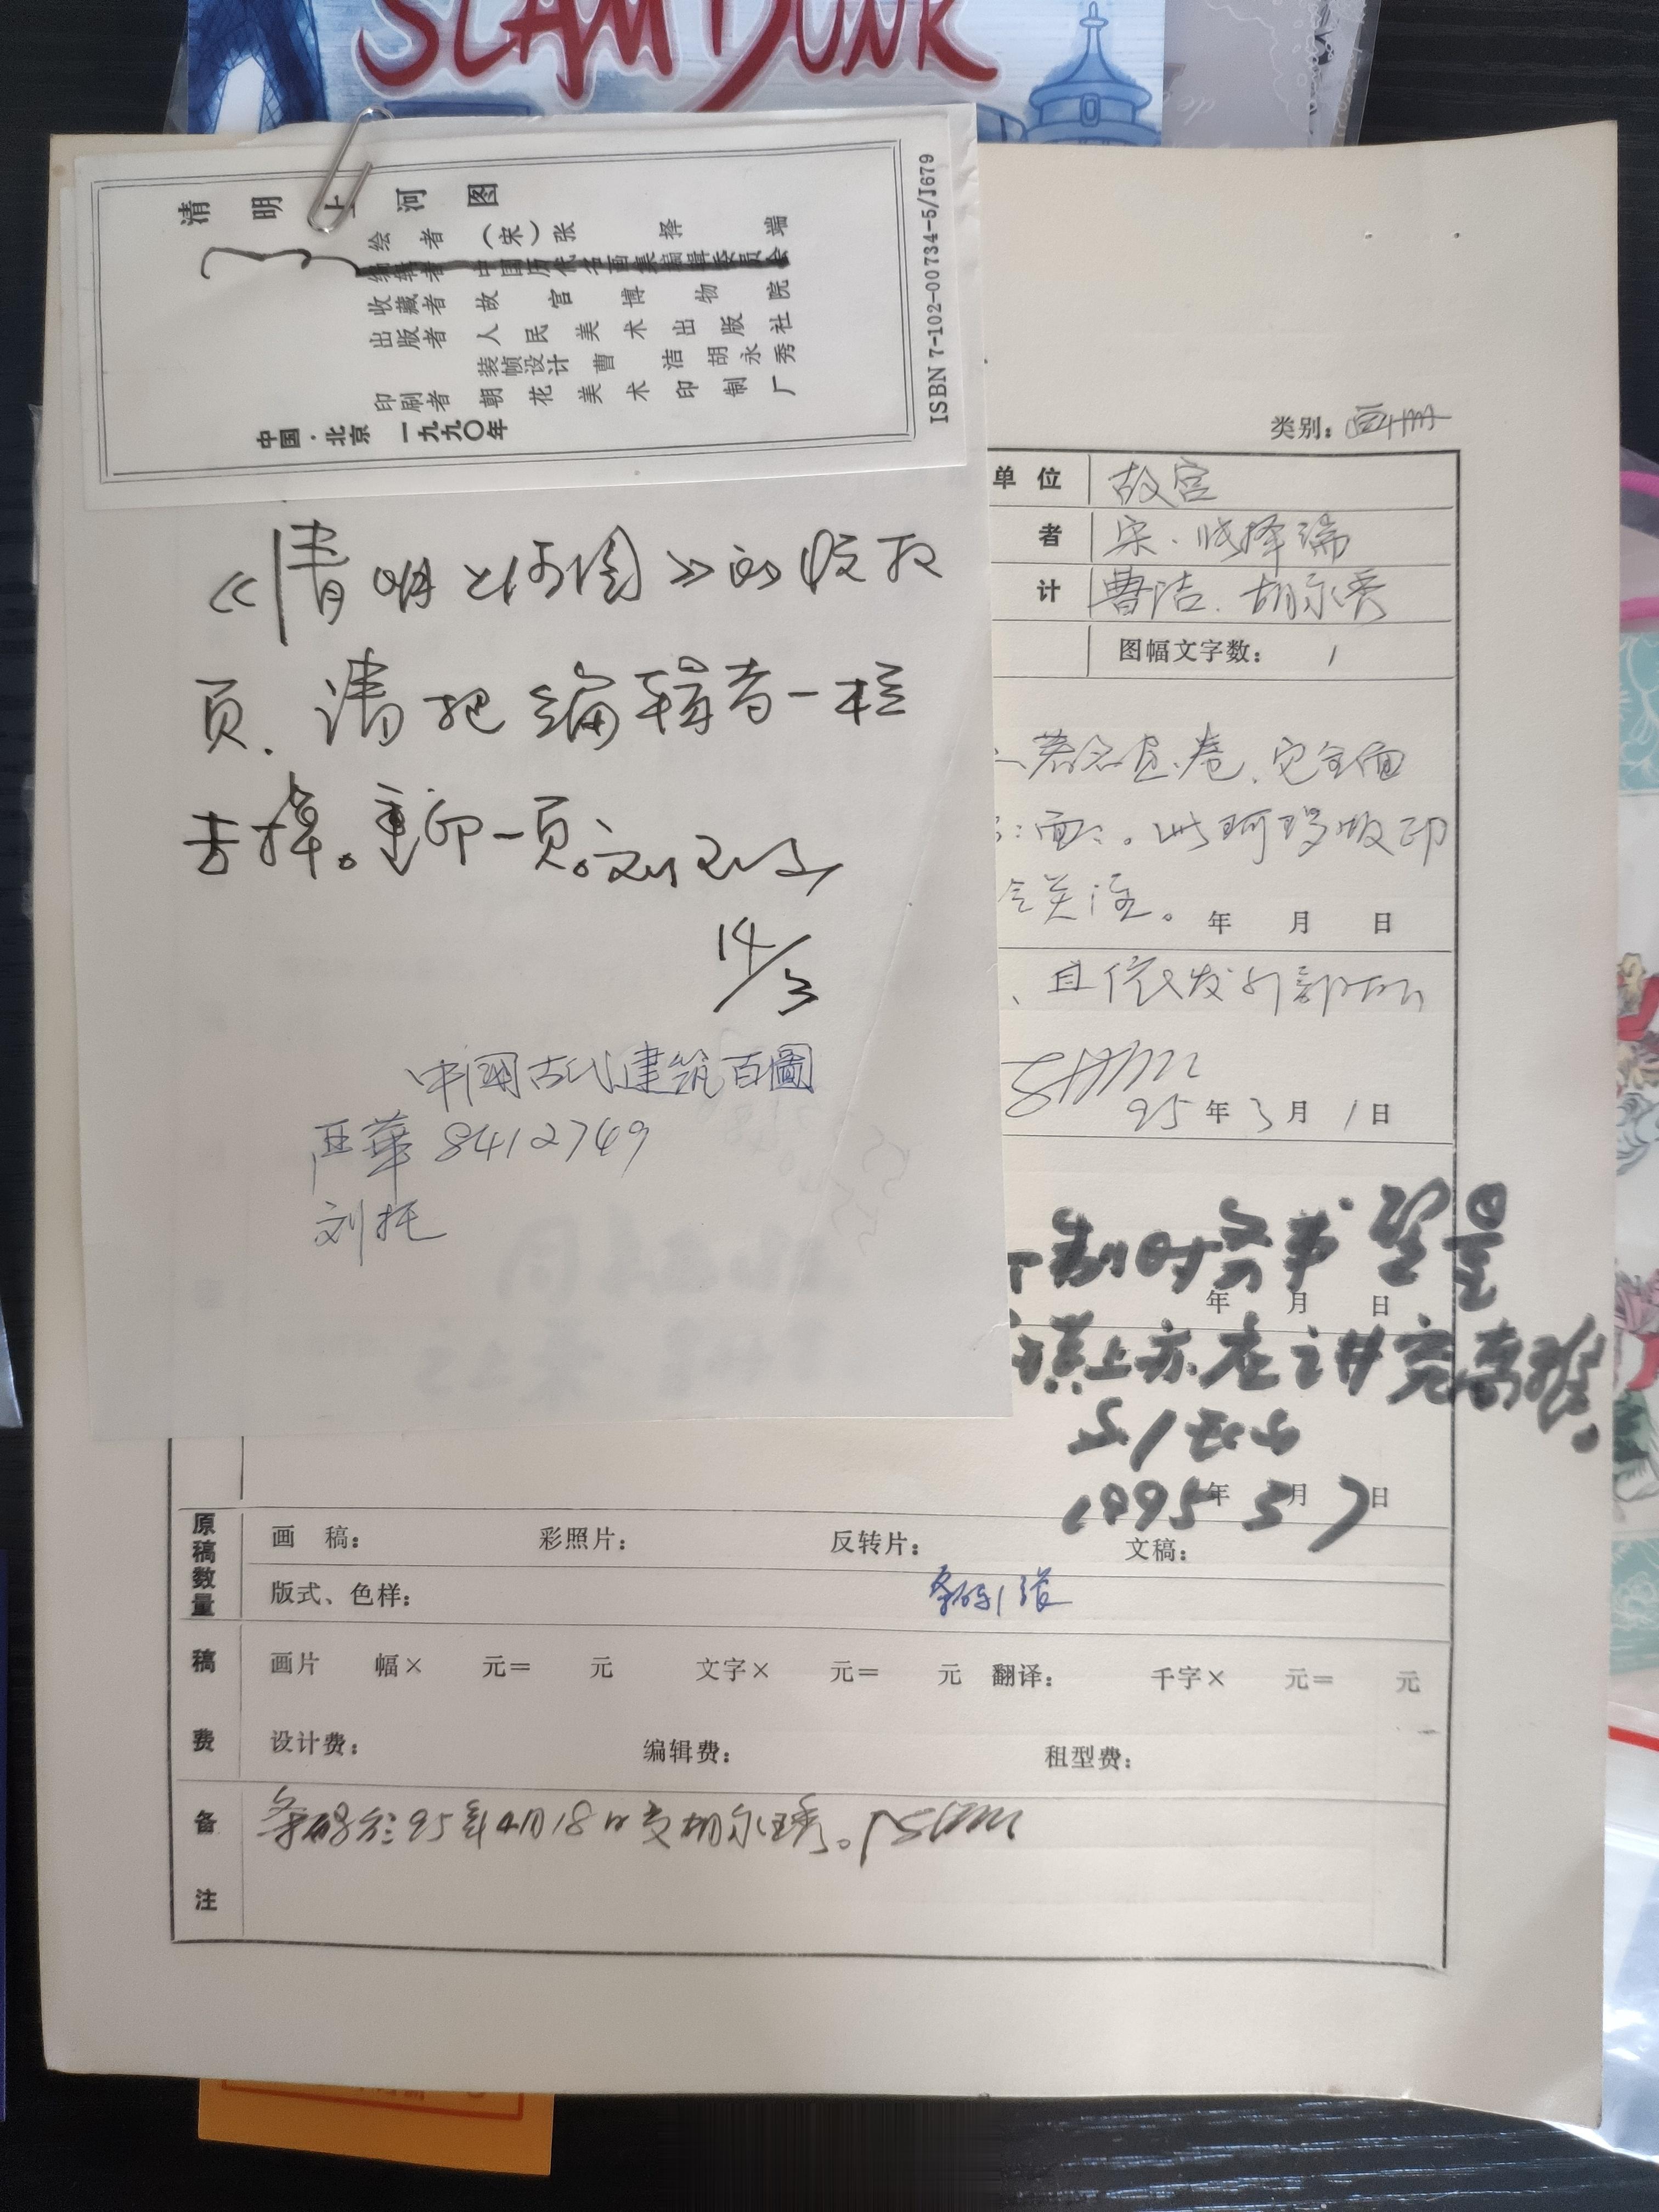 SLAM DUNK
清明上河图
绘者 （宋）张择端
编辑者 中国历代名画集编辑委员会
收藏者 故宫博物院
出版者 人民美术出版社
装帧设计 曹洁 胡永秀
印刷者 朝花美术印制厂
中国·北京 一九九〇年
ISBN 7-102-00734-5/J679
《清明上河图》的版权
页．请把编辑者一栏
去掉。重印一页。刘玉山
14/3
中国古代建筑百圖
华 8412749
刘托
类别：画册
单位 故宫
者 宋·张择端
计 曹洁．胡永秀
图幅文字数： 1
著名画卷，它全面
面。此珂罗版印
关注。 年 月 日
、且依发行部
95年3月1日
制时 望
年 月 日
上亦在讲究
刘玉山
1995年3月7日
原稿数量
画稿： 彩照片： 反转片： 文稿：
版式、色样： 条码1张
稿费
画片 幅× 元＝ 元 文字× 元＝ 元 翻译： 千字× 元＝ 元
设计费： 编辑费： 租型费：
备注
条码于95年4月18日交胡永秀。